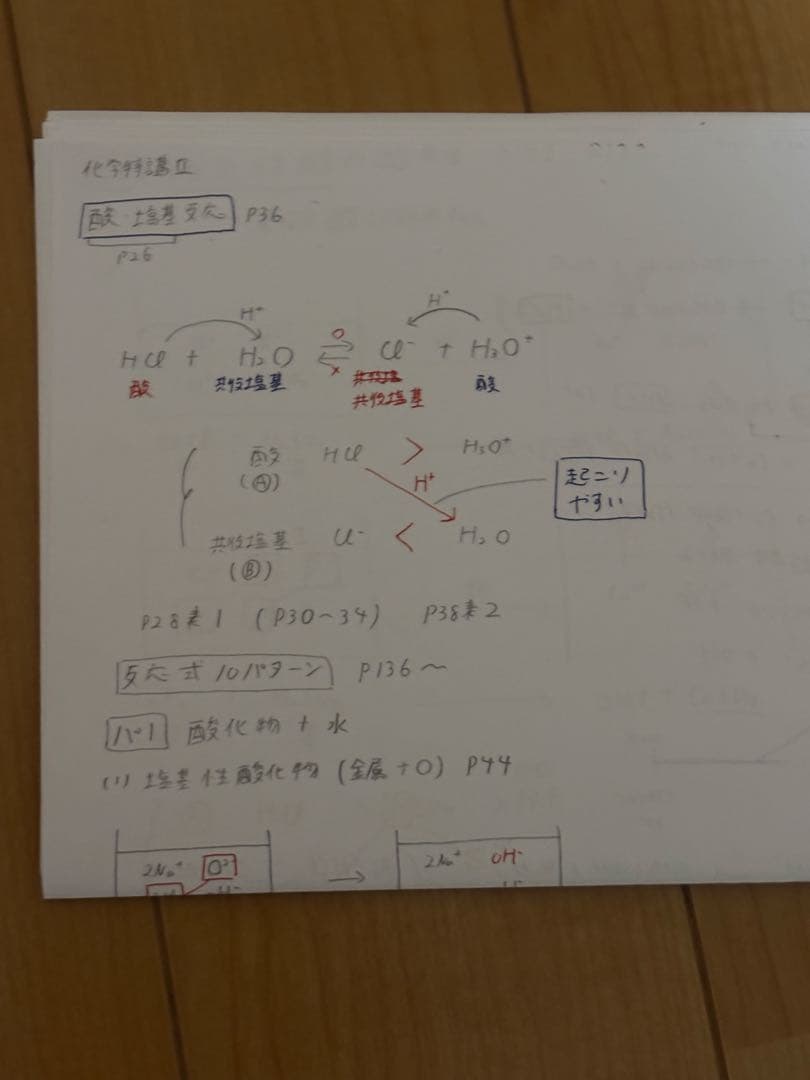 化学特講Ⅱ
酸・塩基反応 P36
P26
H⁺ H⁺
HCl + H₂O ⇄ Cl⁻ + H₃O⁺
○ ×
酸 共役塩基 共役塩基 酸
酸 HCl > H₃O⁺
(Ⓐ) H⁺ 起こり
やすい
共役塩基 Cl⁻ < H₂O
(Ⓑ)
P28表1 (P30〜34) P38表2
反応式10パターン P136〜
パ1 酸化物 + 水
(1) 塩基性酸化物 (金属+O) P44
2Na⁺ O²⁻ → 2Na⁺ OH⁻